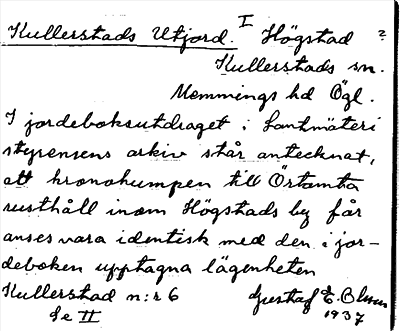 Kullerstads Utjord. I Högstad ?
Kullerstads sn.
Memmings hd Ögl.
I jordeboksutdraget i Lantmäteri
styrensens arkiv står antecknat,
att kronohumpen till Örtamta
rusthåll inom Högstads by får
anses vara identisk med den i jor-
deboken upptagna lägenheten
Kullerstad n:r 6 Gustaf E. Blum
Se II 1937